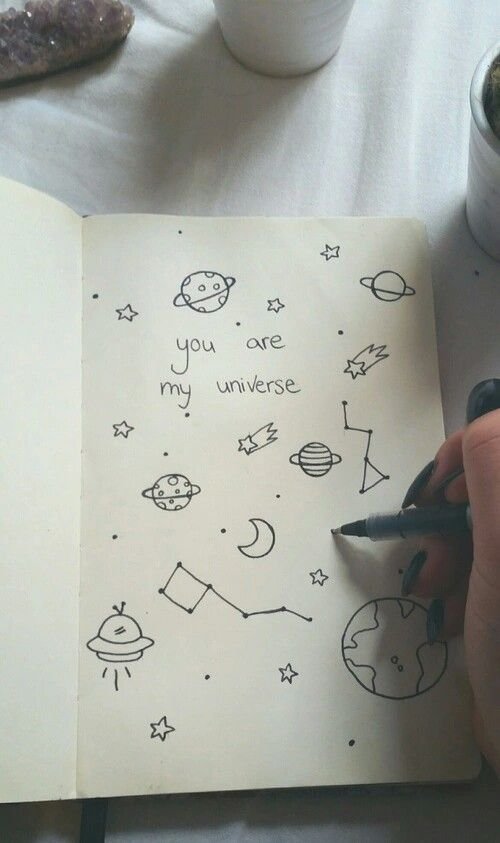 you are
my universe